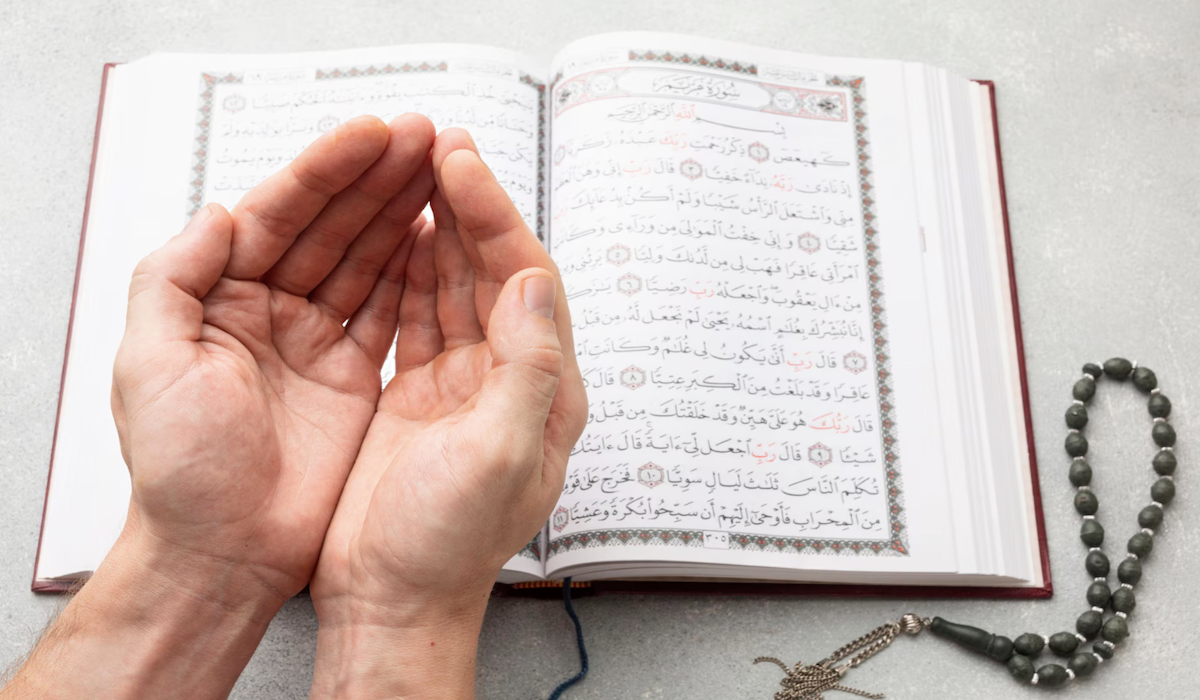 سُورَةُ مَرْيَمَ
بِسْمِ ٱللَّهِ ٱلرَّحْمَٰنِ ٱلرَّحِيمِ
كٓهيعٓصٓ ١ ذِكْرُ رَحْمَتِ رَبِّكَ عَبْدَهُۥ
إِذْ نَادَىٰ رَبَّهُۥ نِدَآءً خَفِيًّا ٣ قَالَ رَبِّ إِنِّي وَهَنَ
مِنِّي وَٱشْتَعَلَ ٱلرَّأْسُ شَيْبًا وَلَمْ أَكُنۢ بِدُعَآئِكَ
شَقِيًّا ٤ وَإِنِّي خِفْتُ ٱلْمَوَٰلِيَ مِن وَرَآءِي
ٱمْرَأَتِي عَاقِرًا فَهَبْ لِي مِن لَّدُنكَ وَلِيًّا ٥ يَرِثُنِي
مِنْ ءَالِ يَعْقُوبَ وَٱجْعَلْهُ رَبِّ رَضِيًّا ٦
إِنَّا نُبَشِّرُكَ بِغُلَٰمٍ ٱسْمُهُۥ يَحْيَىٰ لَمْ نَجْعَل لَّهُۥ مِن قَبْلُ
٧ قَالَ رَبِّ أَنَّىٰ يَكُونُ لِي غُلَٰمٌ وَكَانَتِ
عَاقِرًا وَقَدْ بَلَغْتُ مِنَ ٱلْكِبَرِ عِتِيًّا ٨ قَالَ
قَالَ رَبُّكَ هُوَ عَلَيَّ هَيِّنٌ وَقَدْ خَلَقْتُكَ مِن قَبْلُ
شَيْـًٔا ٩ قَالَ رَبِّ ٱجْعَل لِّيٓ ءَايَةً قَالَ ءَايَتُكَ
تُكَلِّمَ ٱلنَّاسَ ثَلَٰثَ لَيَالٍ سَوِيًّا ١٠ فَخَرَجَ عَلَىٰ
مِنَ ٱلْمِحْرَابِ فَأَوْحَىٰٓ إِلَيْهِمْ أَن سَبِّحُوا۟ بُكْرَةً وَعَشِيًّا ١١
٣٠٥
يَٰيَحْيَىٰ خُذِ ٱلْكِتَٰبَ بِقُوَّةٍ وَءَاتَيْنَٰهُ ٱلْحُكْمَ صَبِيًّا ١٢
وَحَنَانًا مِّن لَّدُنَّا ١٣ وَبَرًّۢا بِوَٰلِدَيْهِ وَلَمْ
يَكُن وَيَوْمَ يَمُوتُ
وَيَوْمَ